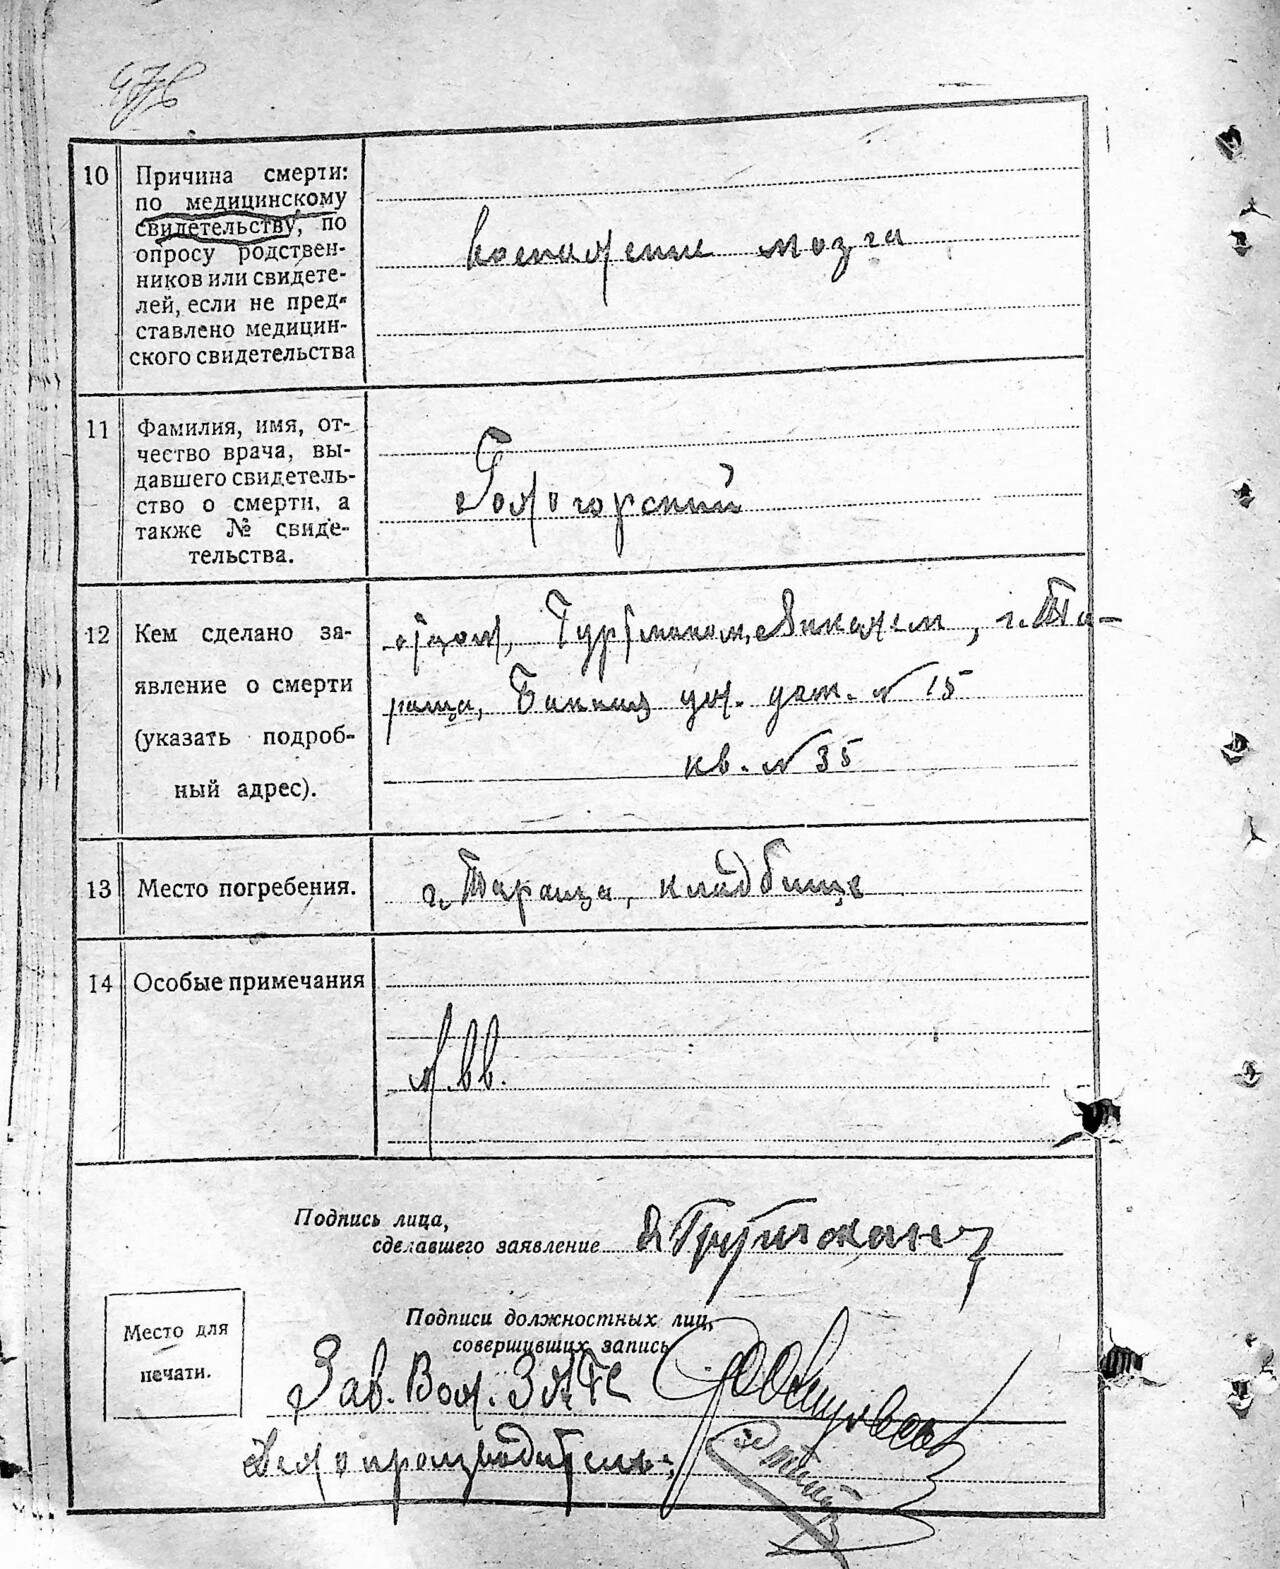 10 Причина смерти:
по медицинскому
свидетельству, по
опросу родствен-
ников или свидете-
лей, если не пред-
ставлено медицин-
ского свидетельства
воспаление мозга
11 Фамилия, имя, от-
чество врача, вы-
давшего свидетель-
ство о смерти, а
также № свиде-
тельства.
Гологорский
12 Кем сделано за-
явление о смерти
(указать подроб-
ный адрес).
отцом, г. Та-
раща, ул. дом. № 15
кв. № 35
13 Место погребения.
г. Тараща, кладбище
14 Особые примечания
Подпись лица,
сделавшего заявление
Подписи должностных лиц,
совершивших запись
Место для
печати.
Зав. Вол. ЗАГС
Делопроизводитель: